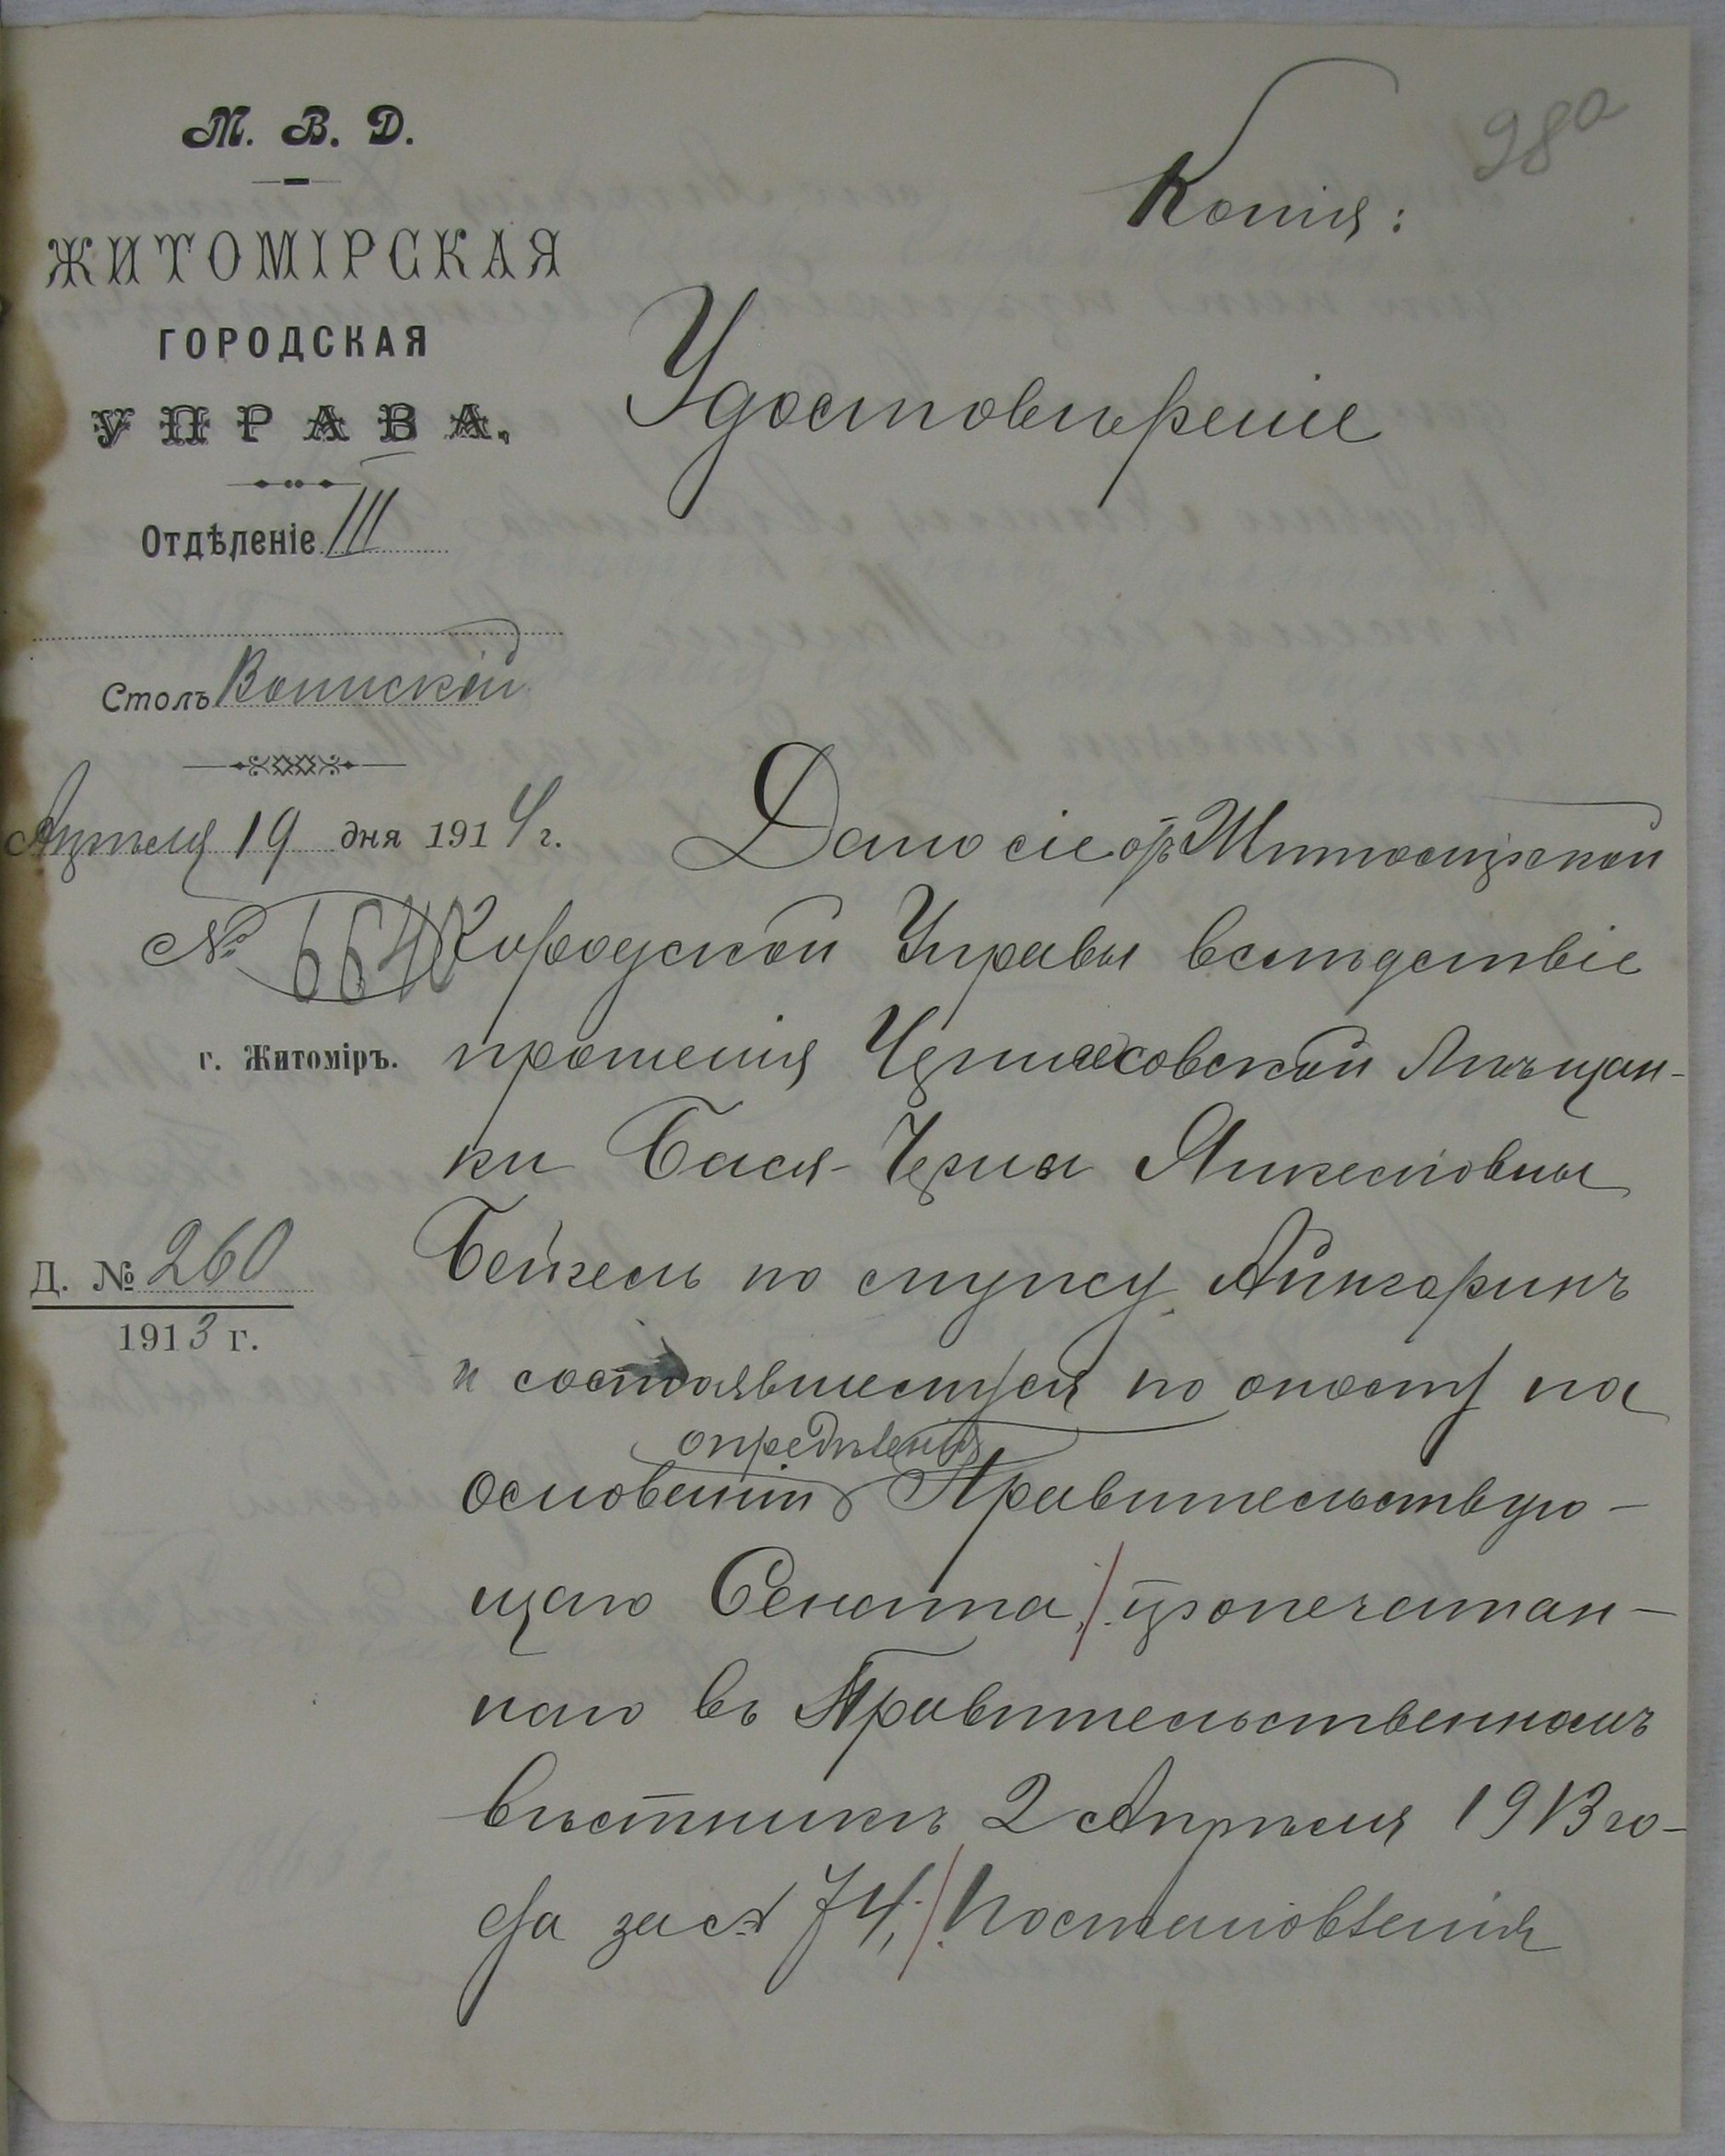 98а
Копія:
М. В. Д.
ЖИТОМІРСКАЯ
ГОРОДСКАЯ
УПРАВА.
Отдѣленіе III
Столъ Воинскій
Апрѣля 19 дня 1914 г.
№ 6640
г. Житоміръ.
Д. № 260
1913 г.
Удостовѣреніе
Дано сіе отъ Житомірской
Городской Управы вслѣдствіе
прошенія мѣщан-
ки Бася-Черна
Бейгель по мужу
и состоявшемуся по оному на
основаніи опредѣленія Правительствую-
щаго Сената, / пропечатан-
наго въ Правительственномъ
вѣстникѣ 2 Апрѣля 1913 го-
да за № 74, / Постановленія